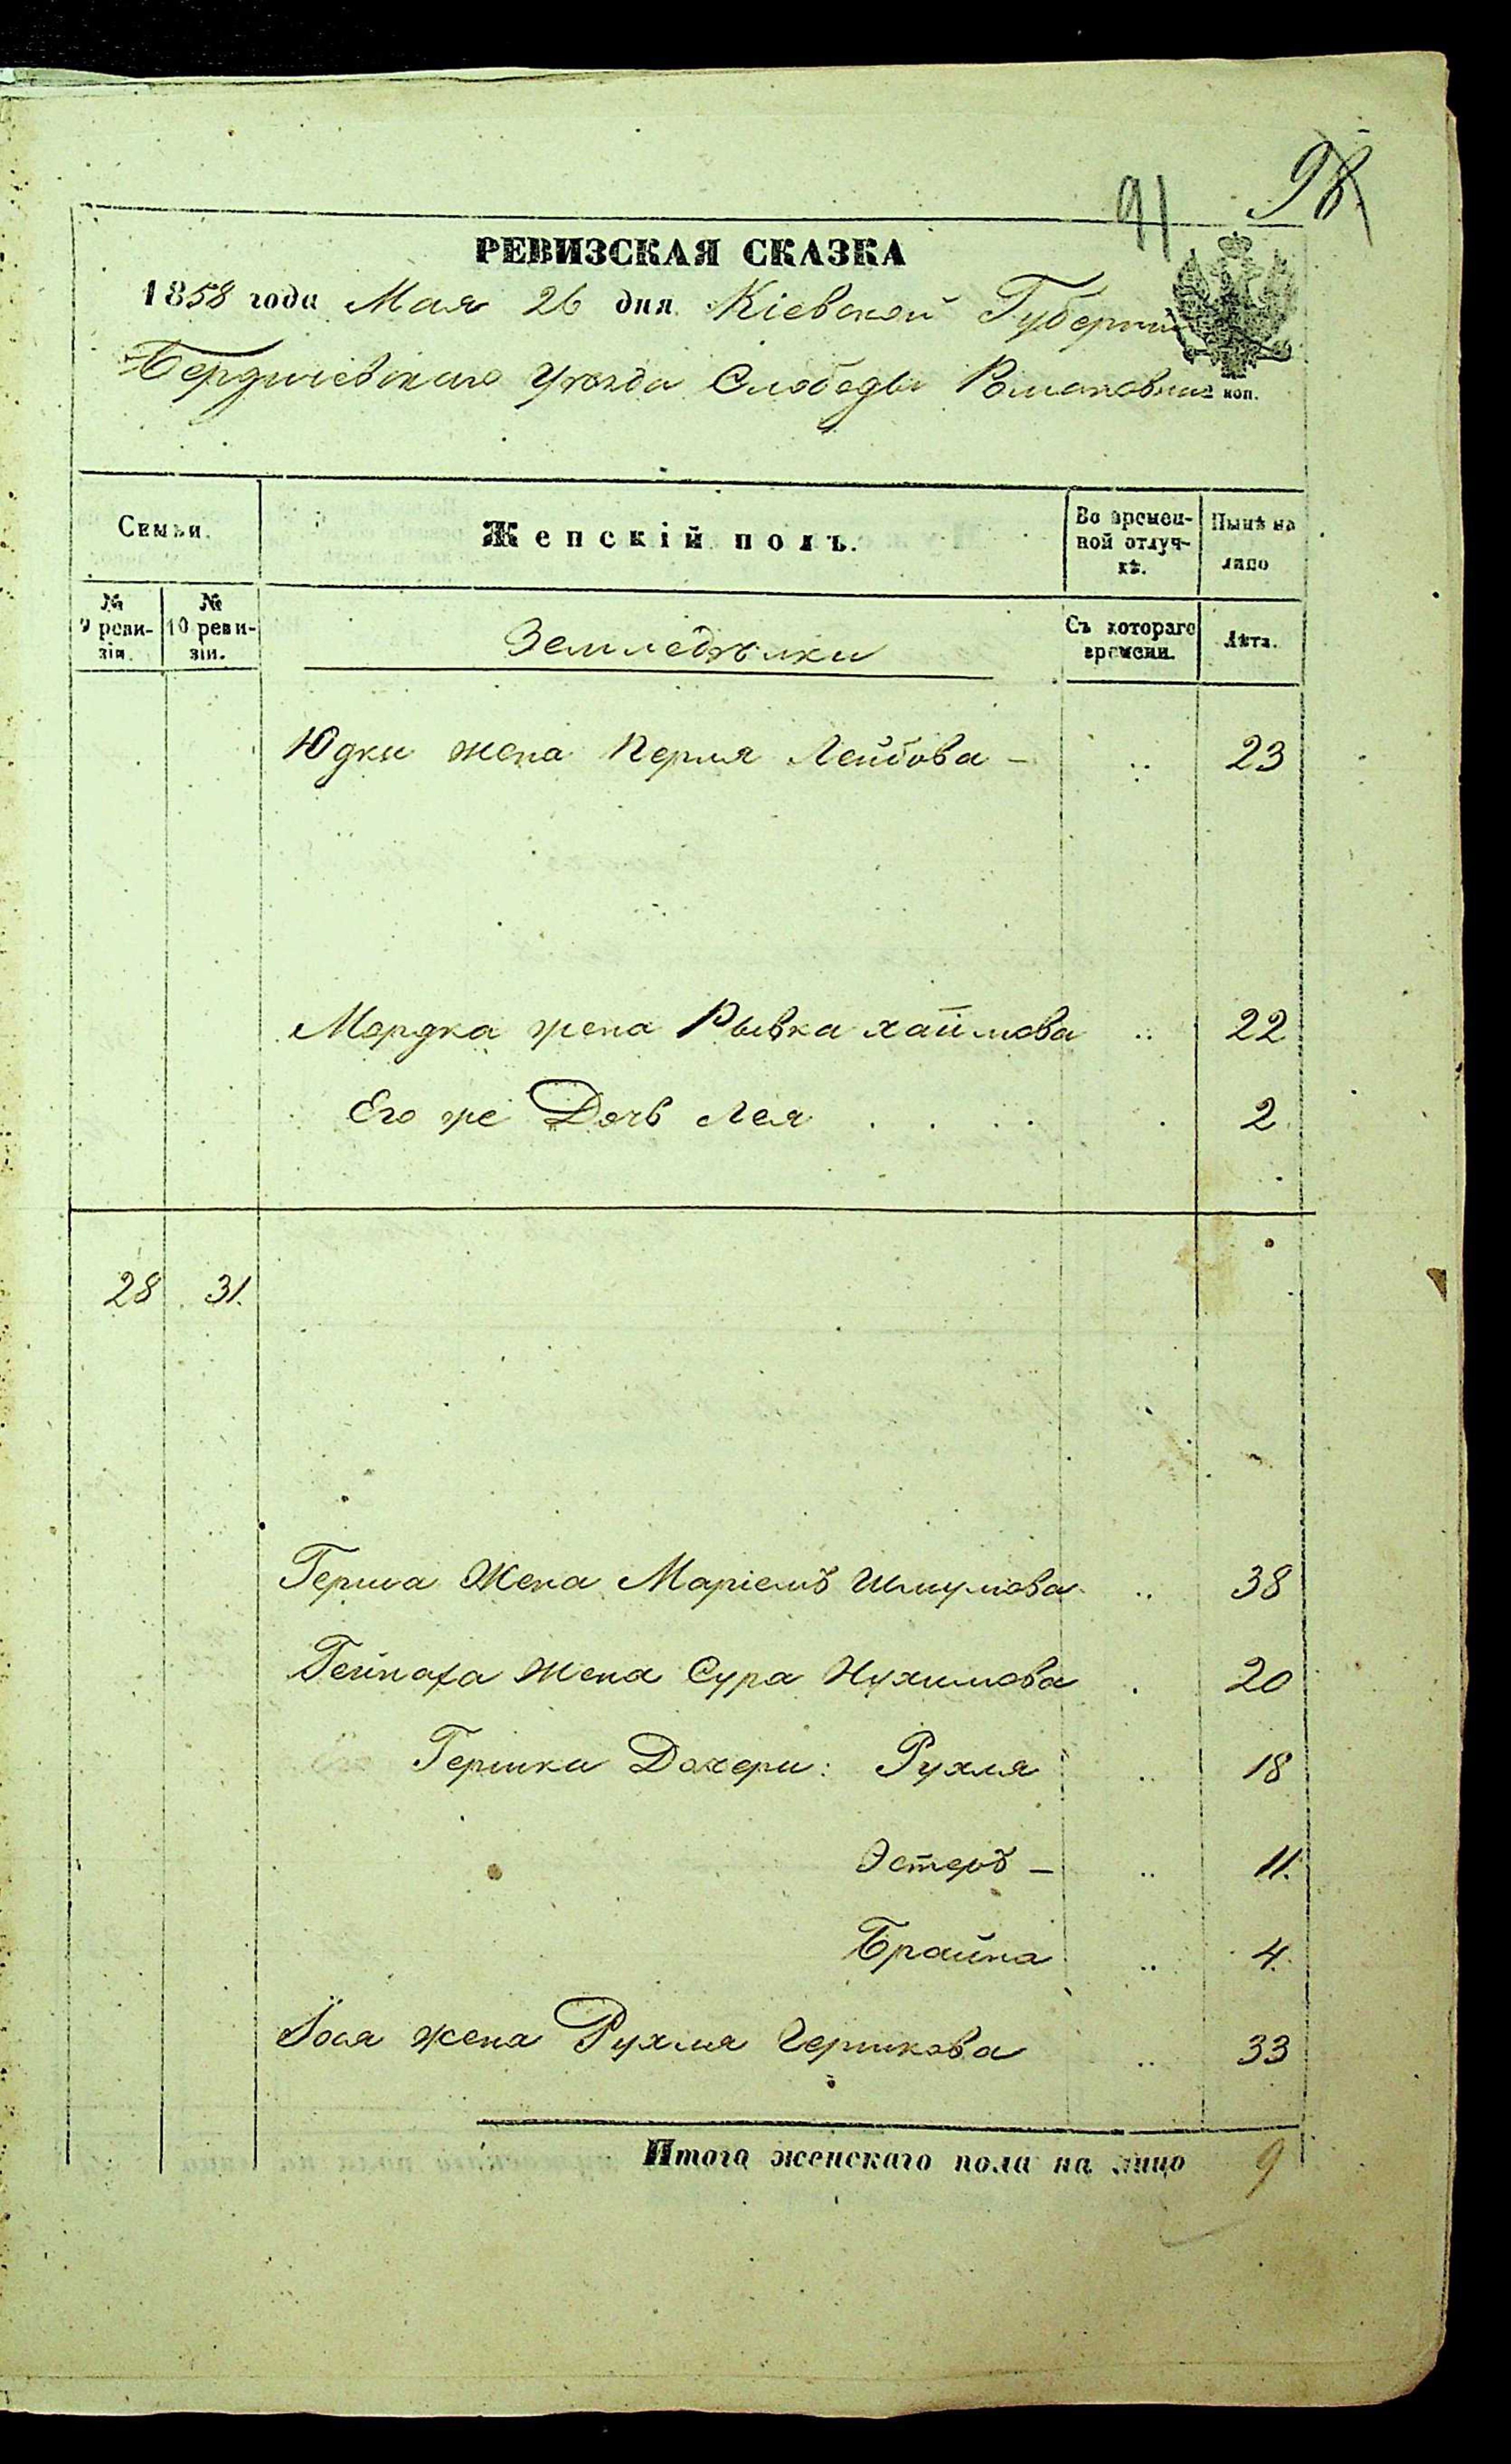 91 98
РЕВИЗСКАЯ СКАЗКА
1858 года Мая 26 дня Кіевской Губерніи
Бердичевскаго Уезда Слободы Романовки коп.
Семьи.
Женскій полъ.
Во времен-
ной отлуч-
кѣ.
Нынѣ на
лицо
№
9 реви-
зіи.
№
10 реви-
зіи.
Земледельцы
Съ котораго
времени.
Лѣта.
Юдки жена Перля Лейбова - 23
Мордка жена Рывка хаймова 22
Его же Дочь Лея . . . . 2
28 31.
Герша Жена Маріемъ Шмулова 38
Жена Сура Нухимова 20
Гершки Дочери: Рухля 18
Эстеръ - 11.
Брайна 4.
Іося жена Рухля Гершкова 33
Итого женскаго пола на лицо 9